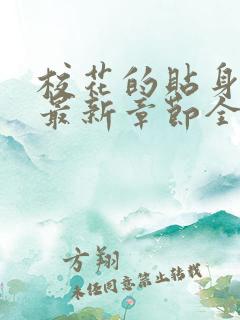 校花的贴身
最新章节全
方翔
未经同意禁止转载